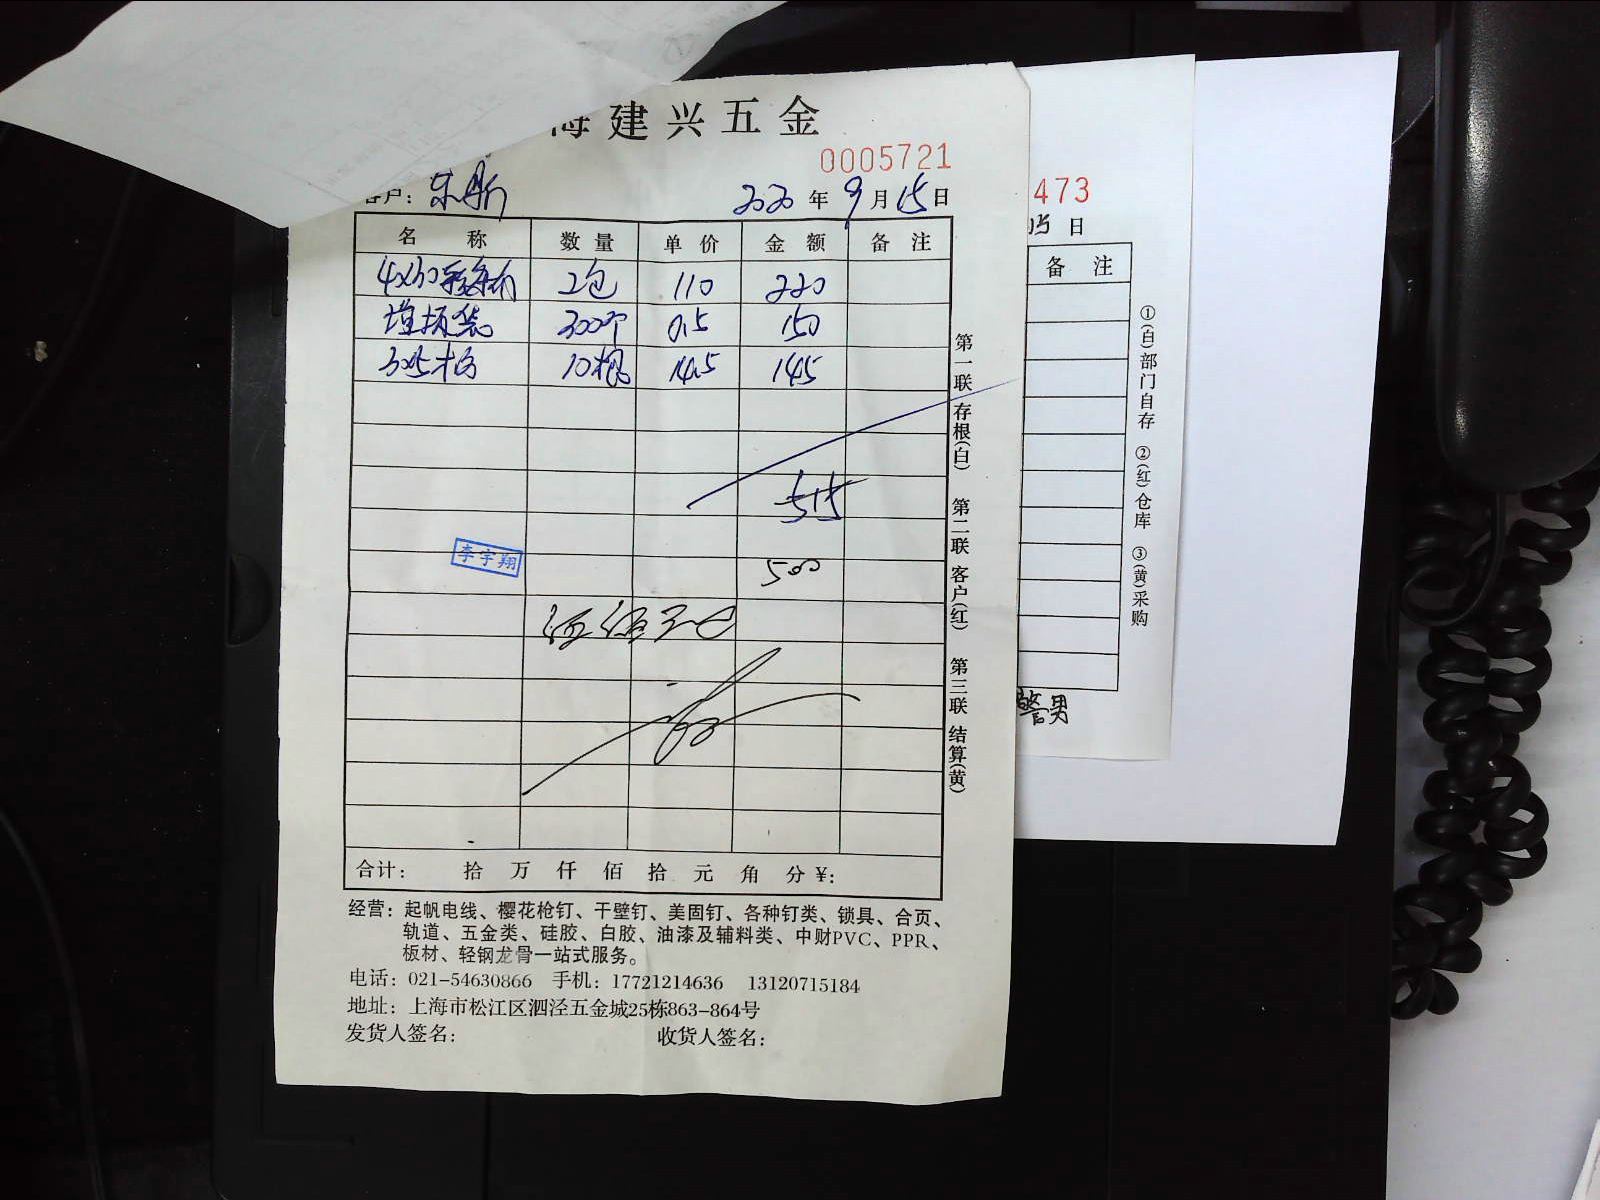 海建兴五金
0005721
客户: 东斯 2020年9月15日
名称 数量 单价 金额 备注
2包 110 220
300个 0.5 150
10根 14.5 145
515
李宇翔
500
合计: 拾 万 仟 佰 拾 元 角 分 ¥:
第一联 存根(白) 第二联 客户(红) 第三联 结算(黄)
经营: 起帆电线、樱花枪钉、干壁钉、美固钉、各种钉类、锁具、合页、
轨道、五金类、硅胶、白胶、油漆及辅料类、中财PVC、PPR、
板材、轻钢龙骨一站式服务。
电话: 021-54630866 手机: 17721214636 13120715184
地址: 上海市松江区泗泾五金城25栋863-864号
发货人签名: 收货人签名:
473
日
备注
①(白)部门自存 ②(红)仓库 ③(黄)采购